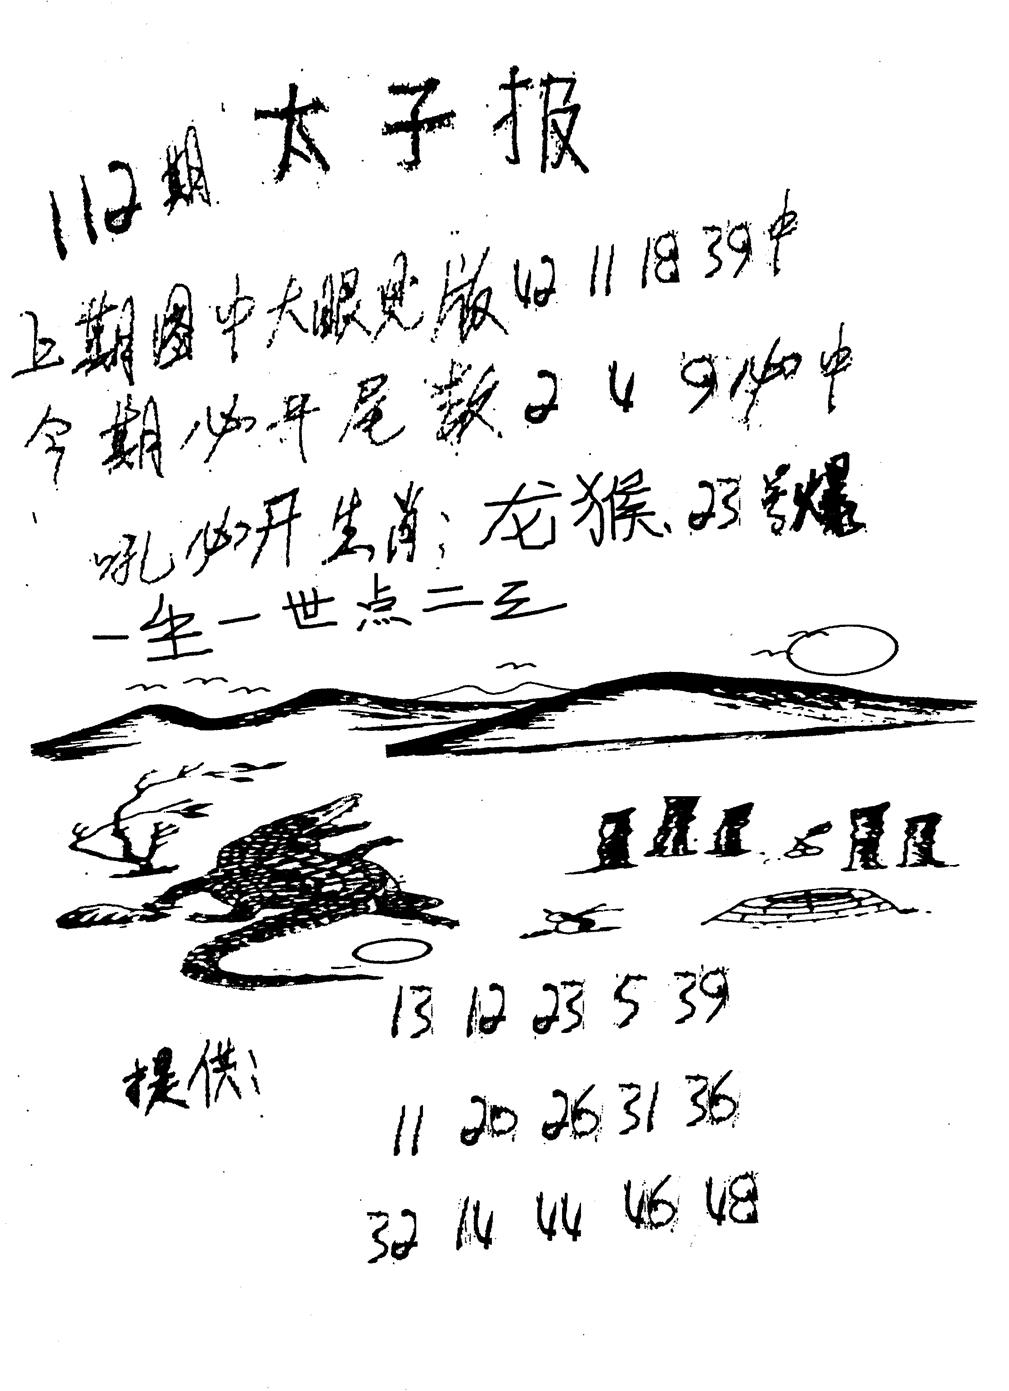 太子报
112期
上期图中大眼见版42 11 18 39中
今期必开尾数2 4 9必中
吼必开生肖：龙猴、23号爆
一生一世点二三
13 12 23 5 39
提供：
11 20 26 31 36
32 14 44 46 48